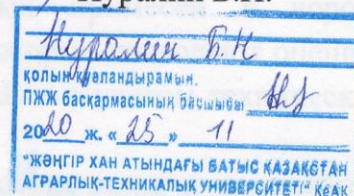 Нуралин Б.Н.
Нуралин Б.Н
қолын куәландырамын.
ПЖЖ басқармасының басшысы
2020 ж. « 25 » 11
"ЖӘҢГІР ХАН АТЫНДАҒЫ БАТЫС ҚАЗАҚСТАН
АГРАРЛЫҚ-ТЕХНИКАЛЫҚ УНИВЕРСИТЕТІ" КеАҚ